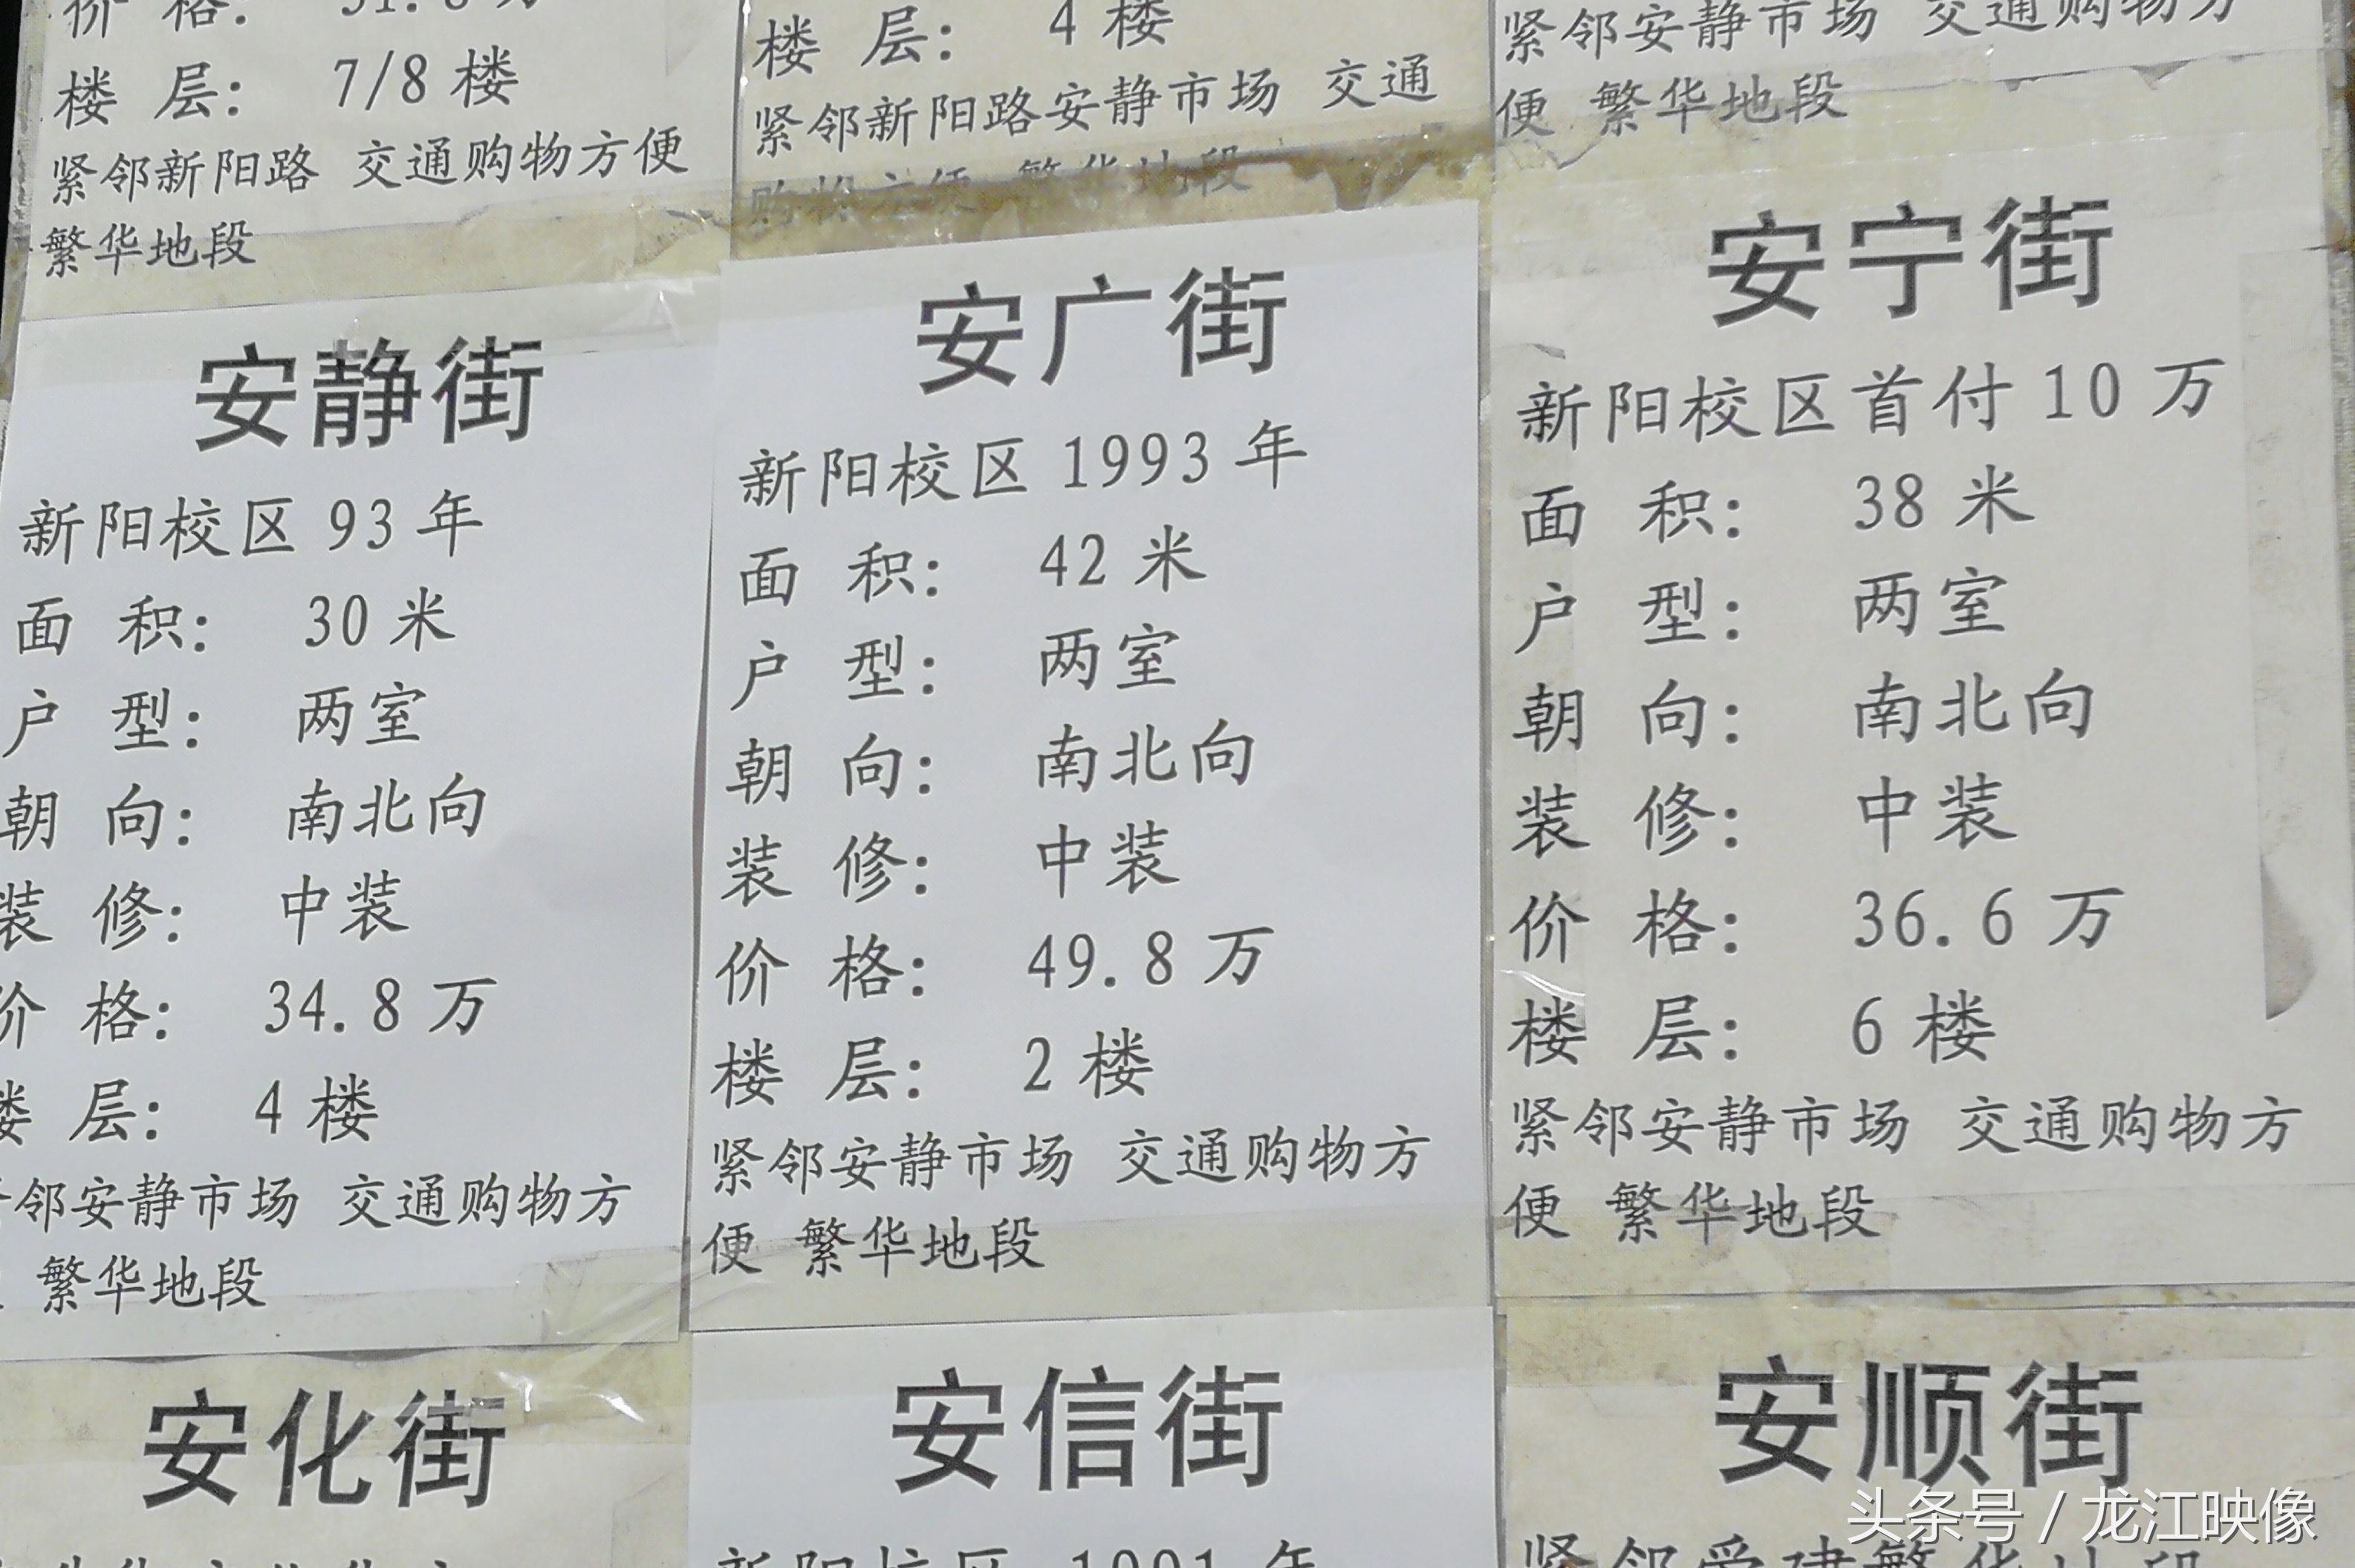 价 格: 31.8万
楼 层: 7/8楼
紧邻新阳路 交通购物方便
繁华地段
楼 层: 4楼
紧邻新阳路安静市场 交通
购物方便 繁华地段
紧邻安静市场 交通购物方
便 繁华地段
安静街
新阳校区93年
面 积: 30米
户 型: 两室
朝 向: 南北向
装 修: 中装
价 格: 34.8万
楼 层: 4楼
邻安静市场 交通购物方
繁华地段
安广街
新阳校区1993年
面 积: 42米
户 型: 两室
朝 向: 南北向
装 修: 中装
价 格: 49.8万
楼 层: 2楼
紧邻安静市场 交通购物方
便 繁华地段
安宁街
新阳校区首付10万
面 积: 38米
户 型: 两室
朝 向: 南北向
装 修: 中装
价 格: 36.6万
楼 层: 6楼
紧邻安静市场 交通购物方
便 繁华地段
安化街
安信街
新阳校区 1991年
安顺街
紧邻爱建繁华地段
头条号 / 龙江映像